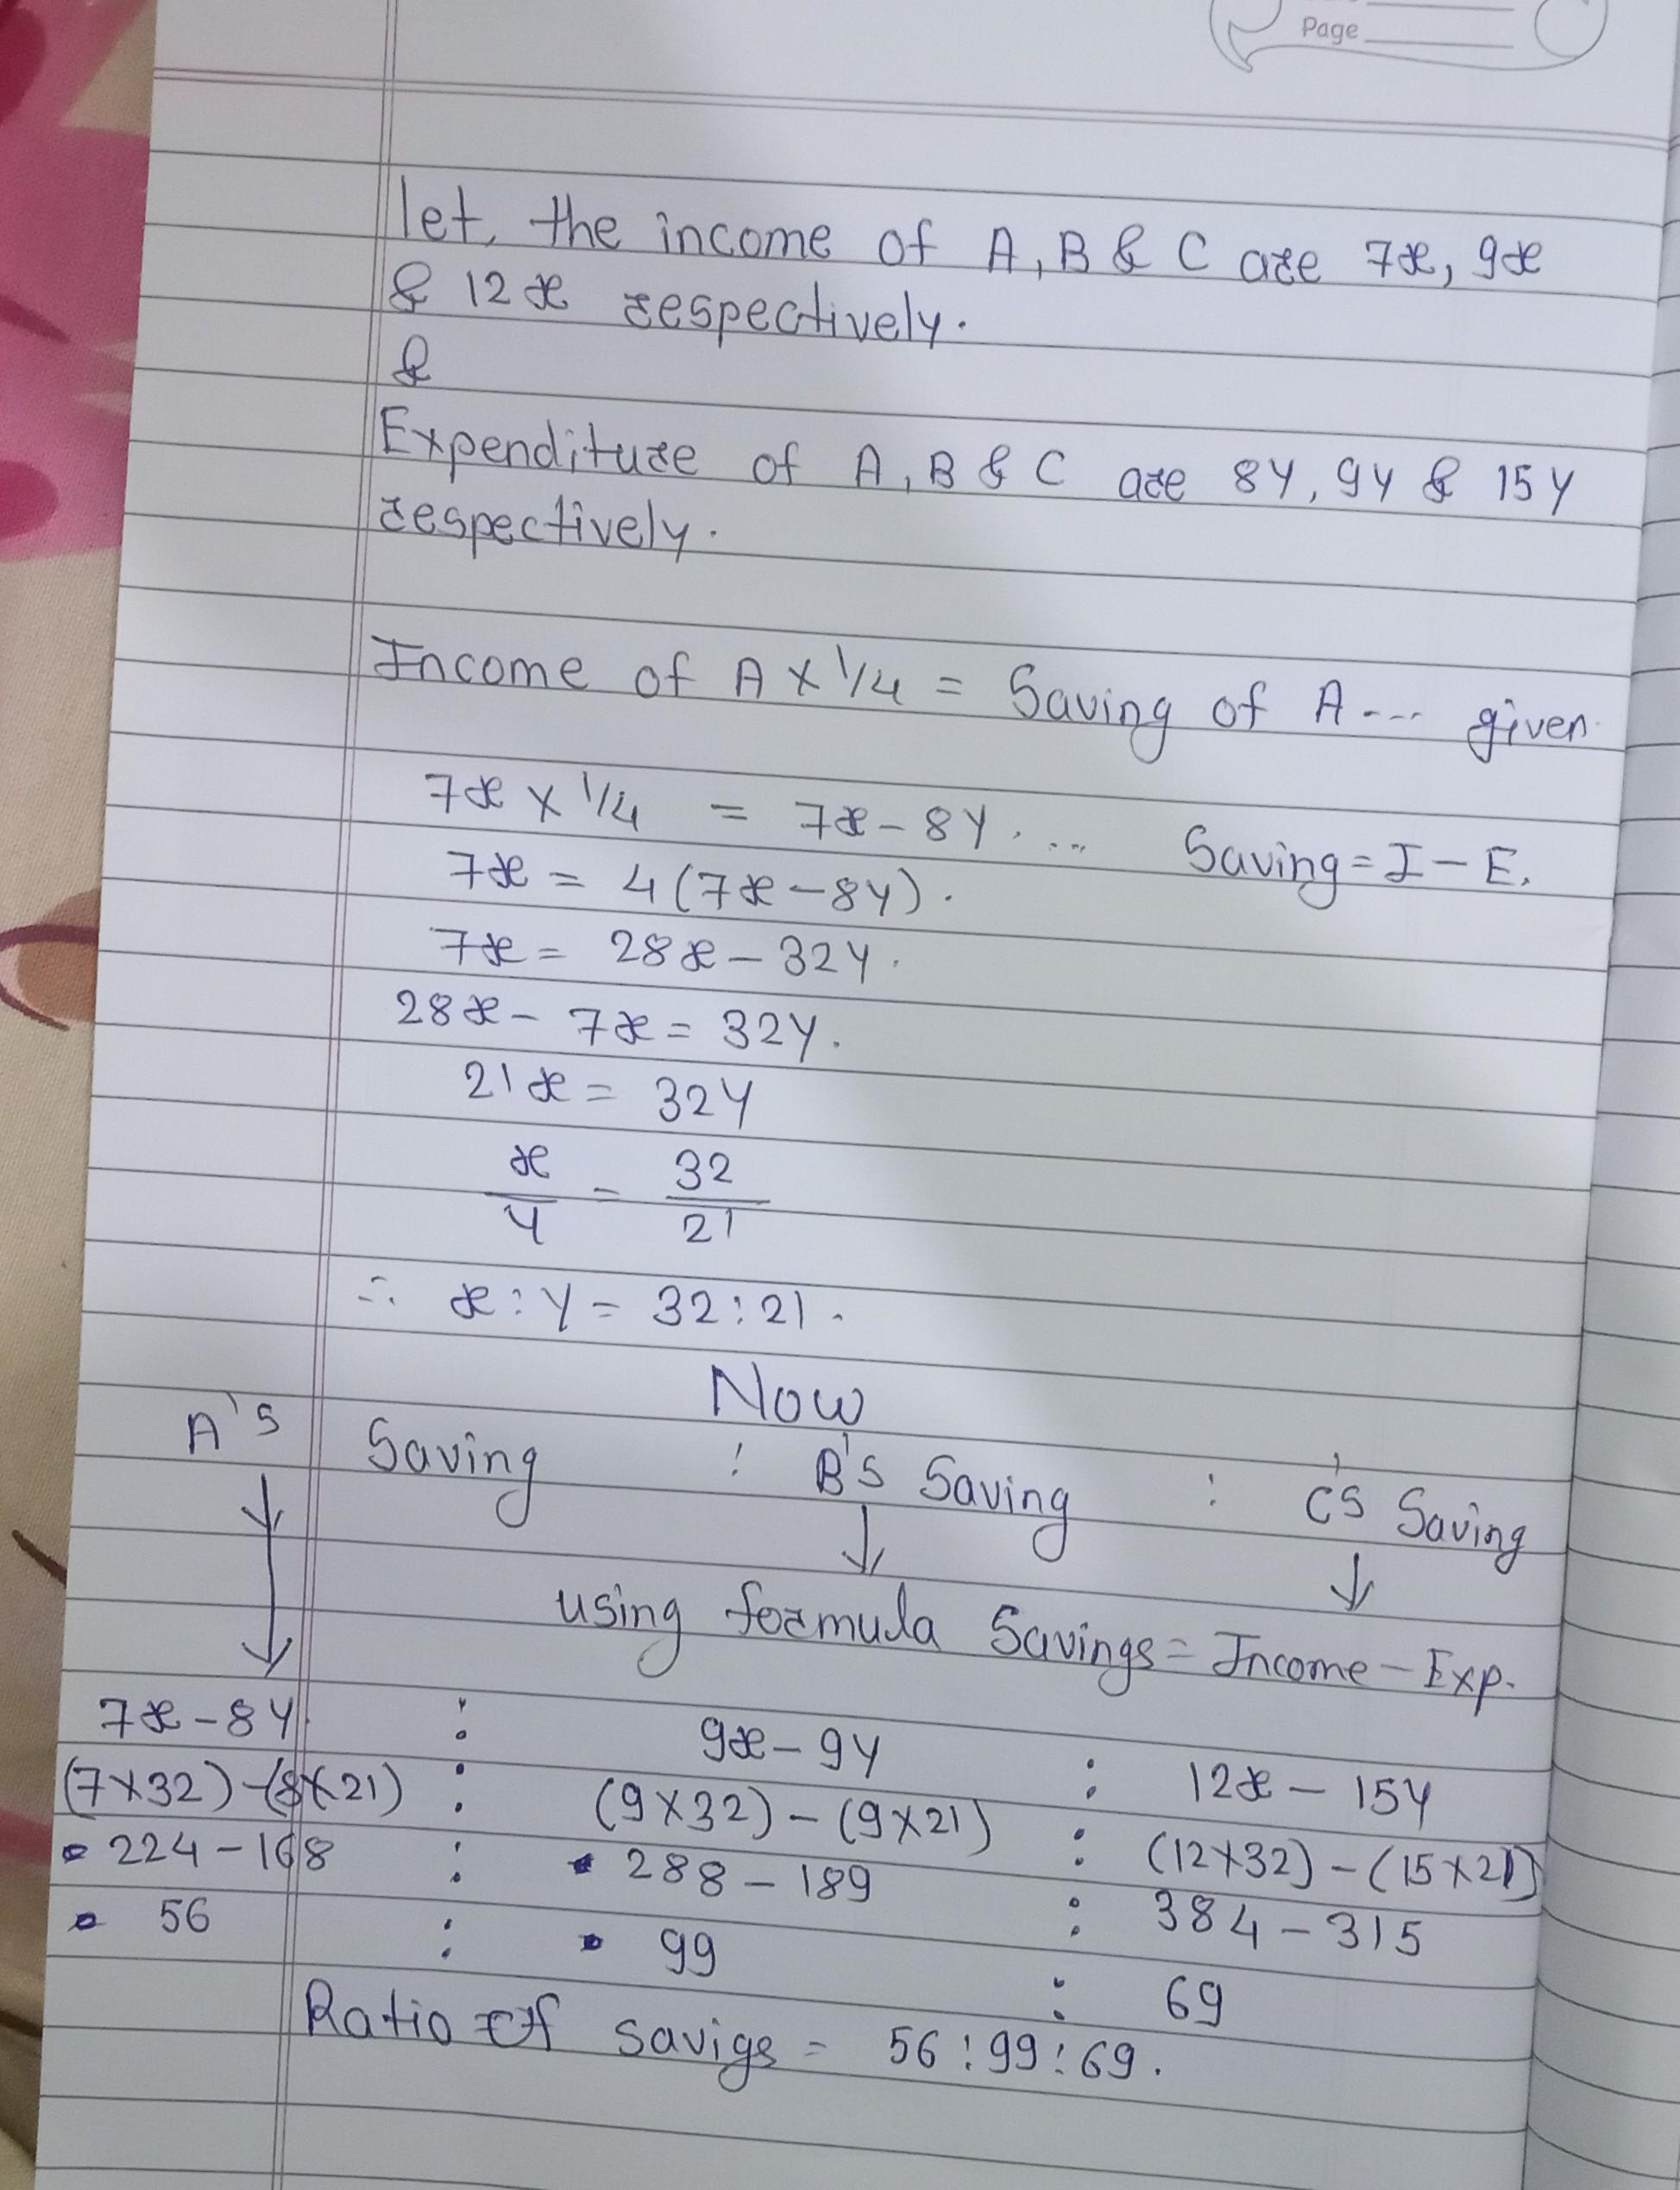 Page
let, the income of A, B & C are 7x, 9x
& 12x respectively.
&
Expenditure of A, B & C are 8y, 9y & 15y
respectively.
Income of A × 1/4 = Saving of A --- given.
7x × 1/4 = 7x - 8y. ... Saving = I - E.
7x = 4(7x - 8y).
7x = 28x - 32y.
28x - 7x = 32y.
21x = 32y
x/y = 32/21
∴ x : y = 32 : 21.
Now
A's Saving : B's Saving : C's Saving
using formula Savings = Income - Exp.
7x - 8y : 9x - 9y : 12x - 15y
(7×32) - (8×21) : (9×32) - (9×21) : (12×32) - (15×21)
224 - 168 : 288 - 189 : 384 - 315
56 : 99 : 69
Ratio of savigs = 56 : 99 : 69.